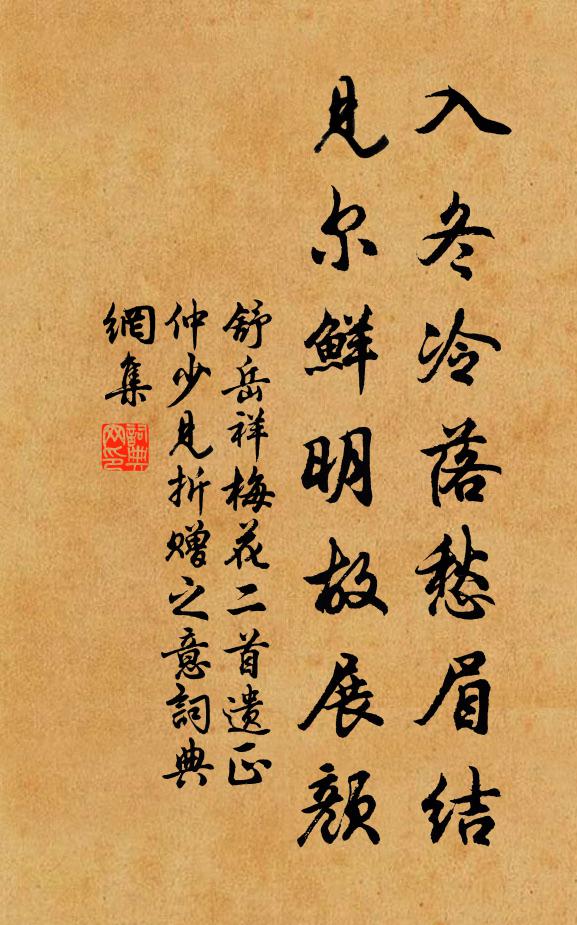 入冬冷落愁眉结
见尔鲜明故展颜
舒岳祥梅花二首遗正
仲少见折赠之意詞典
網集
詞典網印